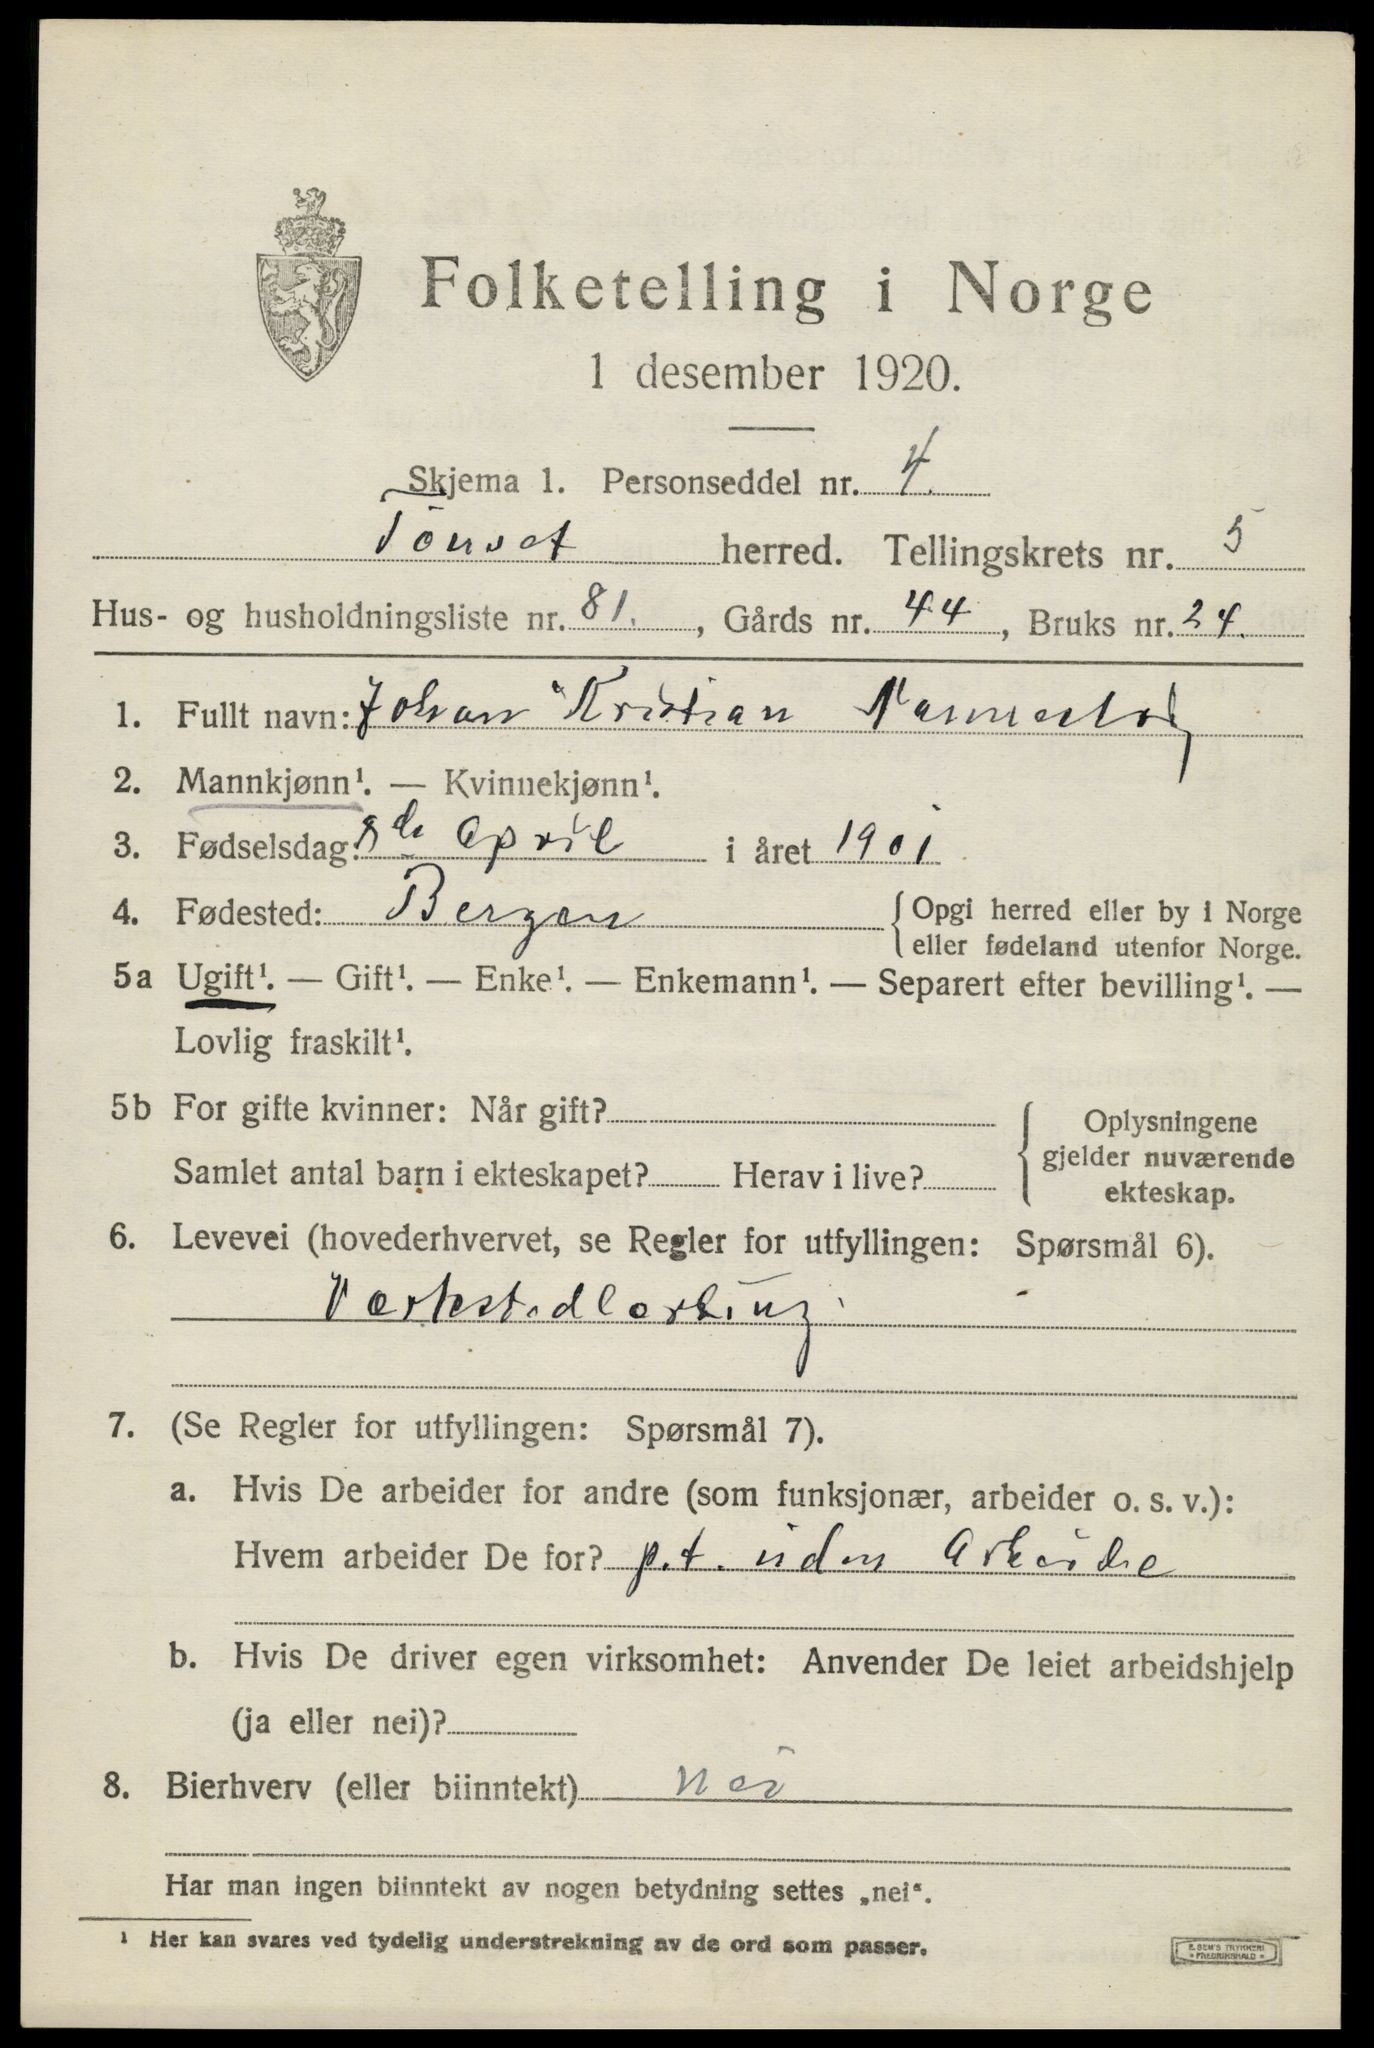 Folketelling i Norge
1 desember 1920.
Skjema 1. Personseddel nr. 4.
Tönset herred. Tellingskrets nr. 5
Hus- og husholdningsliste nr. 81. , Gårds nr. 44 , Bruks nr. 24.
1. Fullt navn: Johan Kristian
2. Mannkjønn¹. — Kvinnekjønn¹.
3. Fødselsdag: 8de April i året 1901
4. Fødested: Bergen {Opgi herred eller by i Norge
eller fødeland utenfor Norge.
5a Ugift¹. — Gift¹. — Enke¹. — Enkemann¹. — Separert efter bevilling¹. —
Lovlig fraskilt¹.
5b For gifte kvinner: Når gift? Oplysningene
gjelder nuværende
Samlet antal barn i ekteskapet? Herav i live? ekteskap.
6. Levevei (hovederhvervet, se Regler for utfyllingen: Spørsmål 6).
7. (Se Regler for utfyllingen: Spørsmål 7).
a. Hvis De arbeider for andre (som funksjonær, arbeider o. s. v.):
Hvem arbeider De for? p.t. uden Arbeide
b. Hvis De driver egen virksomhet: Anvender De leiet arbeidshjelp
(ja eller nei)?
8. Bierhverv (eller biinntekt) nei
Har man ingen biinntekt av nogen betydning settes „nei“.
¹ Her kan svares ved tydelig understrekning av de ord som passer.
E. SEM'S TRYKKERI
* FREDRIKSHALD *